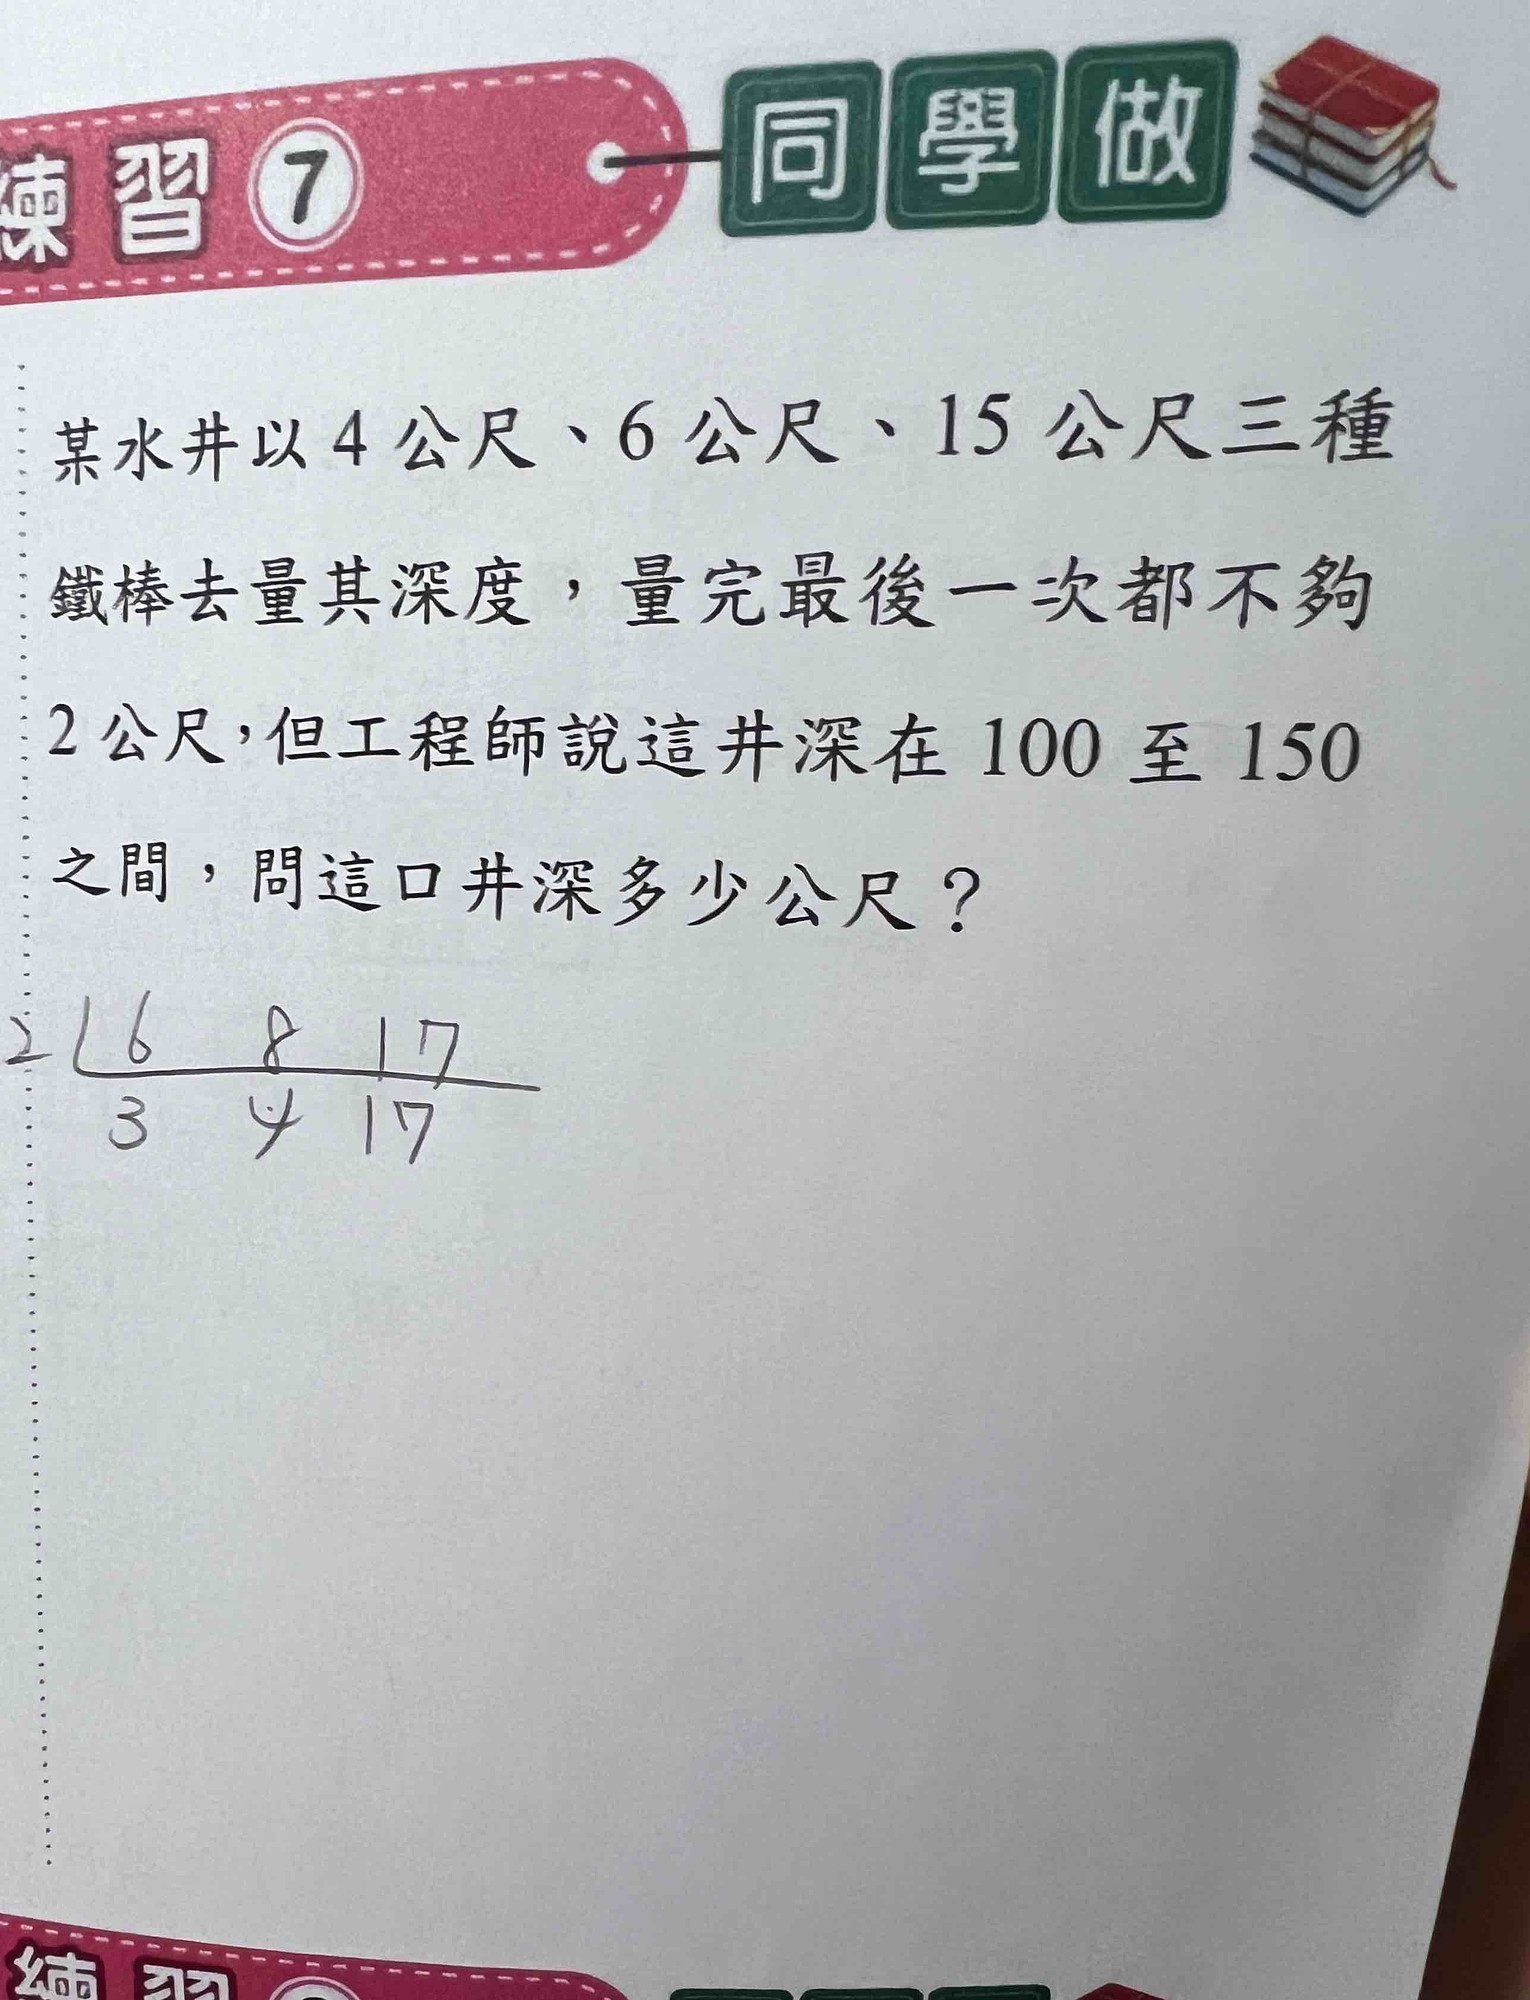 練習⑦ 同學做
某水井以 4 公尺、6 公尺、15 公尺三種
鐵棒去量其深度，量完最後一次都不夠
2 公尺，但工程師說這井深在 100 至 150
之間，問這口井深多少公尺？
2 6 8 17
3 4 17
練習